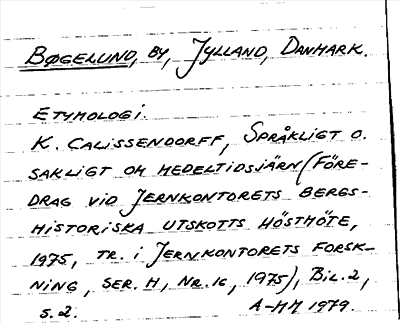 Bøgelund, by, Jylland, Danmark.
Etymologi.
K. Calissendorff, Språkligt o.
sakligt om medeltidsjärn (Före-
drag vid Jernkontorets Bergs-
historiska utskotts höstmöte,
1975, tr. i Jernkontorets forsk-
ning, ser. H, Nr. 16, 1975), Bil. 2,
s. 2.  A-MM 1979.